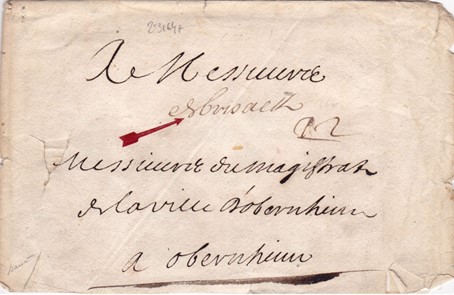 A Messieurs
de brisack
22
Messieurs du magistrat
de la ville d'obernheim
a obernheim